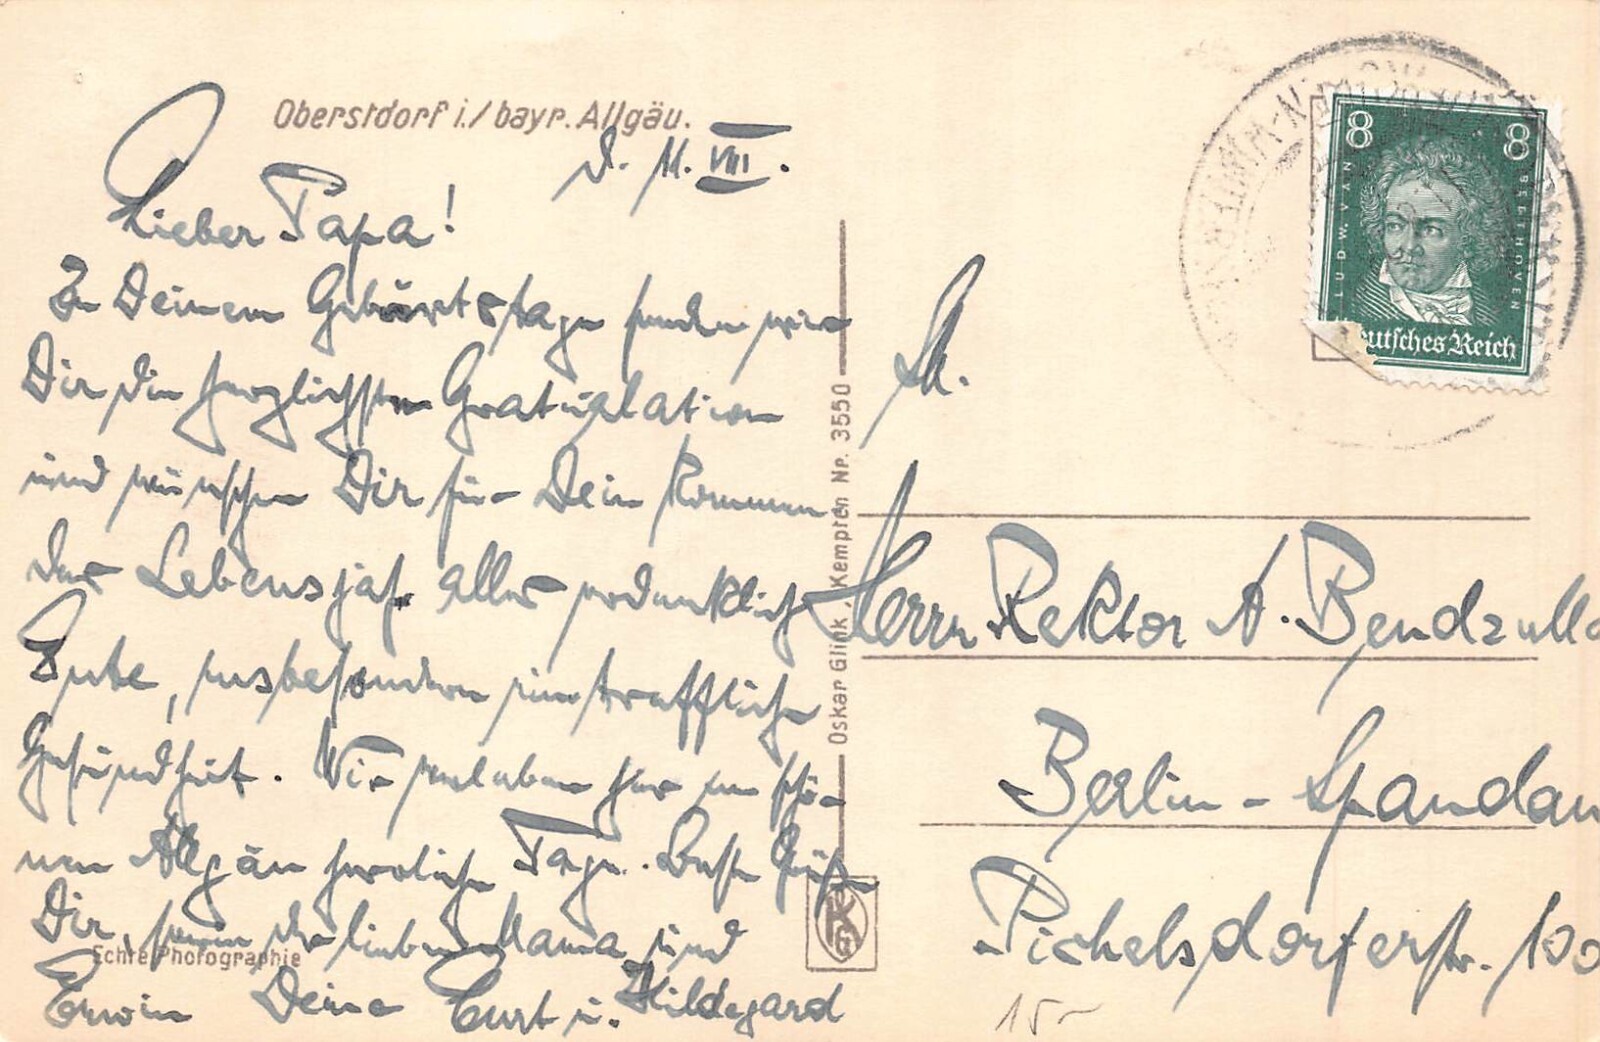 Oberstdorf i./bayr. Allgäu.
d. 11. VIII.
Lieber Papa!
Zu Deinem Geburtstage senden wir
Dir die herzlichsten Gratulation
und wünschen Dir für Dein kommen
des Lebensjahr alles erdenklich
Gute, insbesondere eine treffliche
Gesundheit. Wir verleben hier im schö-
nen Allgäu herrliche Tage. Beste Grüße
Dir, sowie der lieben Mama und
Erwin Deine Curt u. Hildegard
Echte Photographie
Oskar Glink, Kempten Nr. 3550
Sr.
Herrn Rektor A. Bendzulla
Berlin - Spandau
Pichelsdorferstr. 100
15-
8 8
LUDW. VAN BEETHOVEN
Deutsches Reich